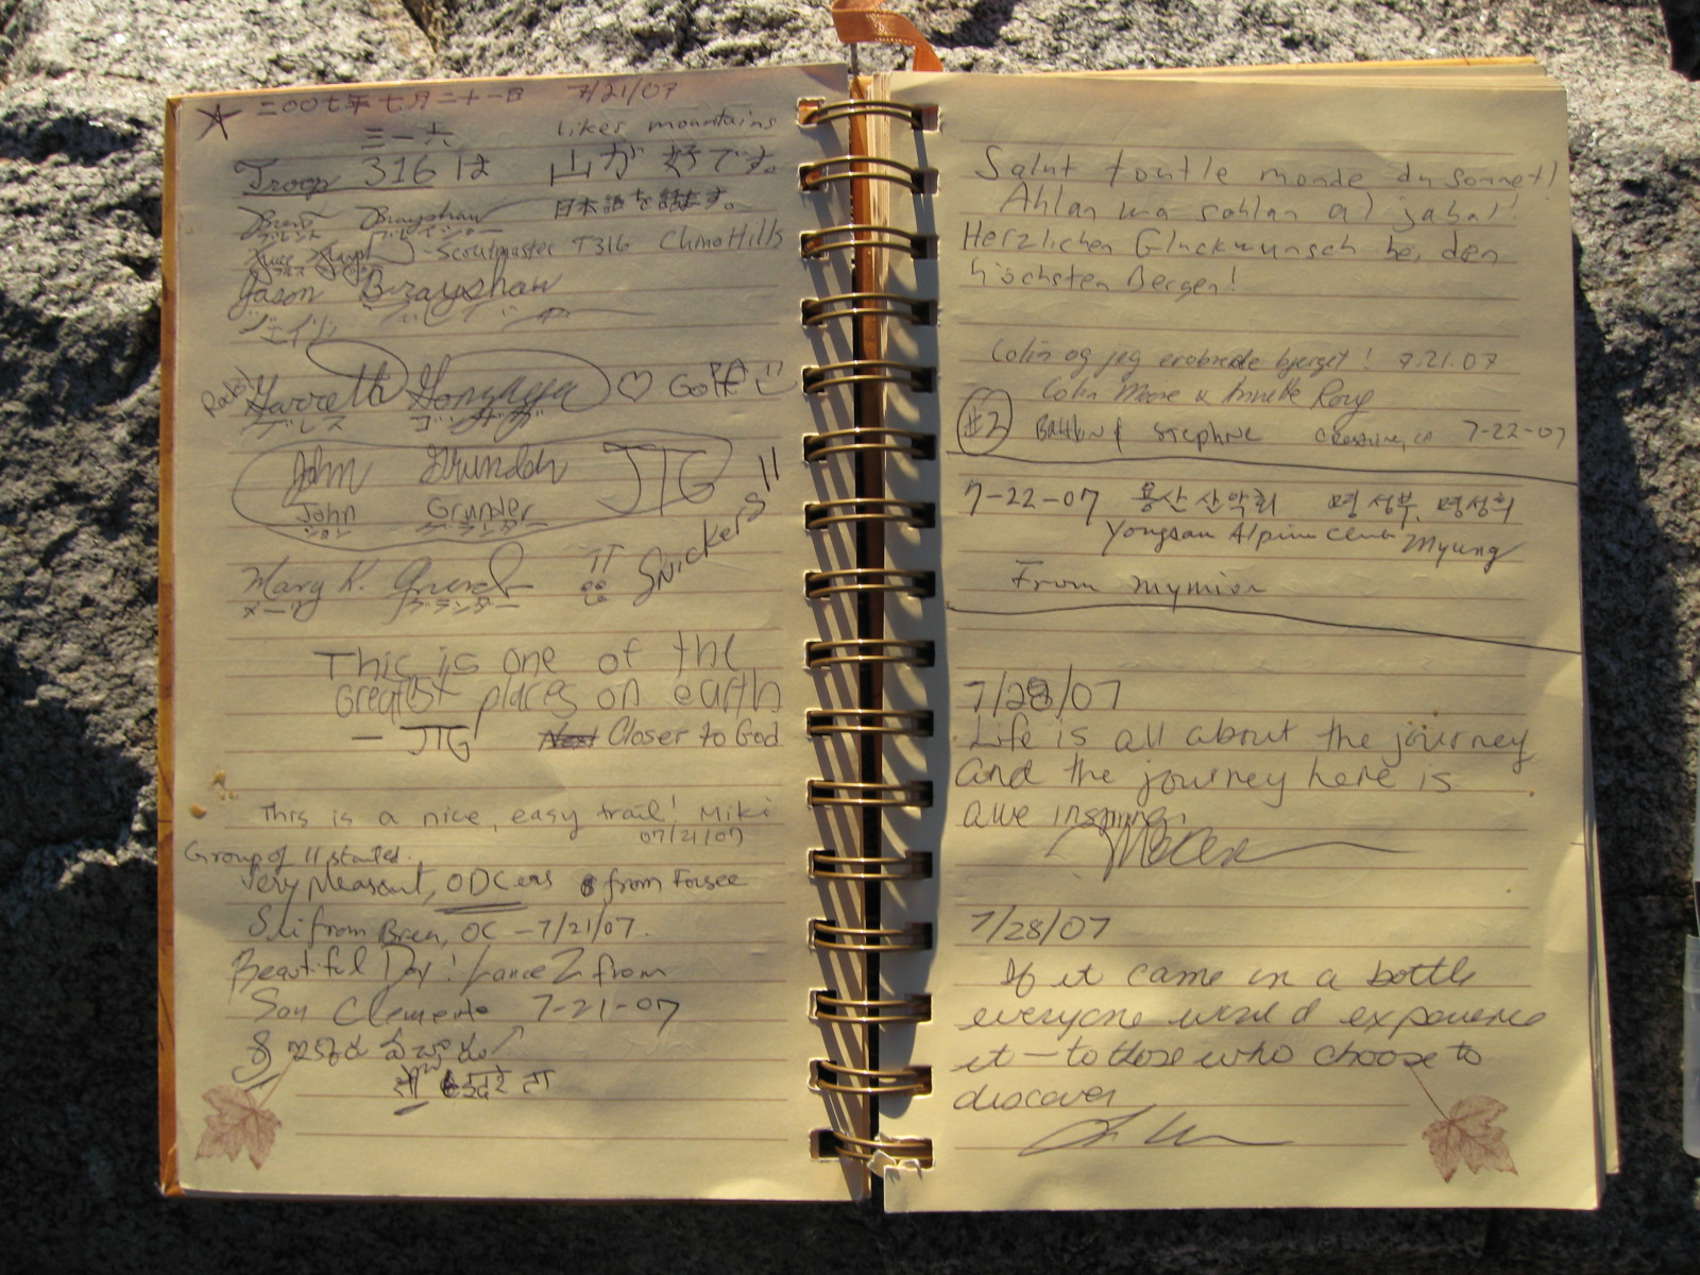 二〇〇七年七月二十一日 7/21/07
三一六 likes mountains
Troop 316は 山が好きです。
Brent Brayshaw 日本語を話ます。
ブレント ブレイショー
- Scoutmaster T316 Chino Hills
Jason Brayshaw
ジェイソン
Garrett ♡ Golf
John JTG
John Grunder
ジョン グランダー
Mary K.
メーリ グランダー
Snickers!!
This is one of the
greatest places on earth
- JTG Closer to God
This is a nice, easy trail! Miki
07/21/07
Group of 11 started.
Very pleasant, ODCers from
from Brea, OC - 7/21/07.
Beautiful Day! Lance Z from
San Clemente 7-21-07
Salut tout le monde du sommet!
Ahlan wa sahlan al jabal!
Herzlichen Glückwunsch bei den
höchsten Bergen!
Colin og jeg erobrede bjerget! 7.21.07
Colin Moore & Annette
#2 7-22-07
7-22-07 용산 산악회 명성부, 명성희
Yongsan Alpine Club Myung
From
7/28/07
Life is all about the journey
and the journey here is
awe inspiring.
7/28/07
If it came in a bottle
everyone would experience
it - to those who choose to
discover